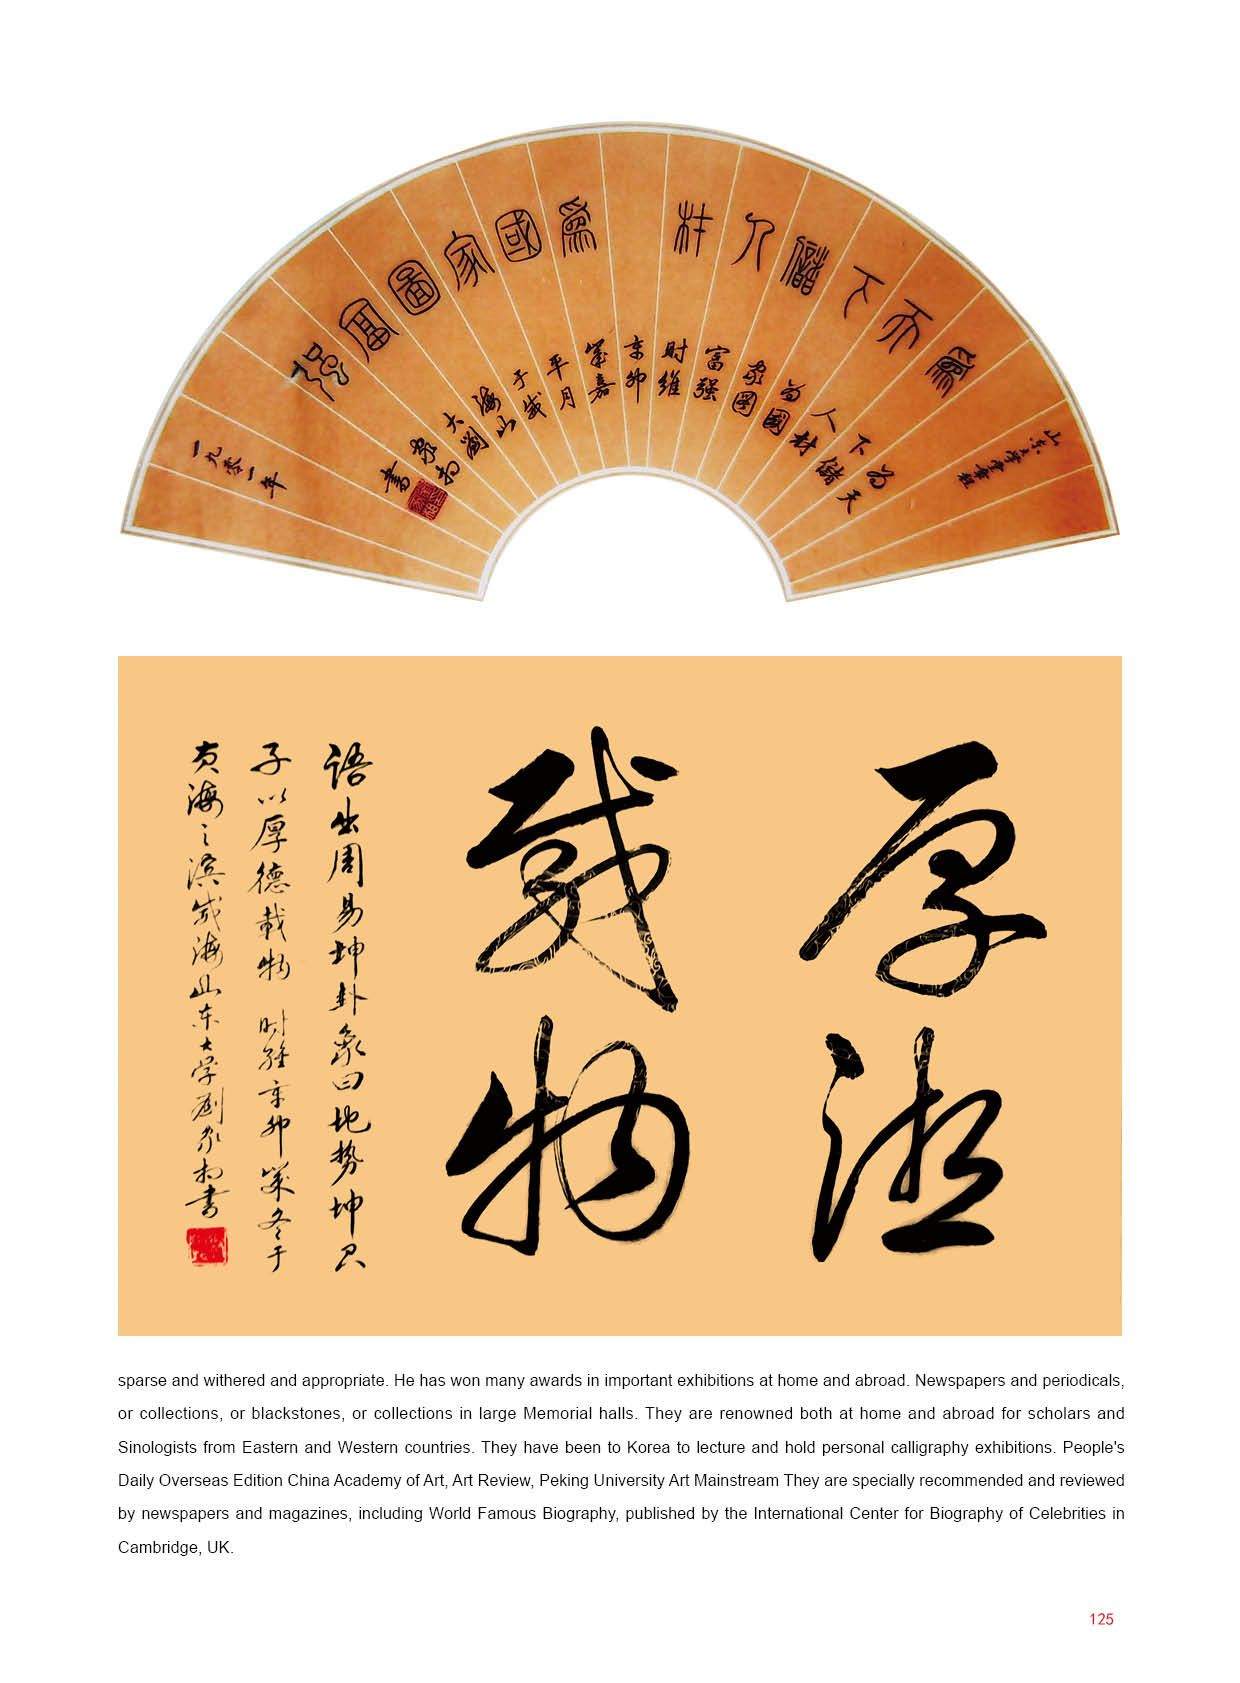 為天下儲人材
為國家圖富強
为天
下儲
人材
为國
家图
富强
时维
辛卯
歲嘉
平月
于威
海山
大劉
家尚
書
一九零一年
厚德
载物
语出周易坤卦象曰地势坤君
子以厚德载物 时维辛卯歲冬于
黄海之滨威海山东大学刘家尚书
sparse and withered and appropriate. He has won many awards in important exhibitions at home and abroad. Newspapers and periodicals,
or collections, or blackstones, or collections in large Memorial halls. They are renowned both at home and abroad for scholars and
Sinologists from Eastern and Western countries. They have been to Korea to lecture and hold personal calligraphy exhibitions. People's
Daily Overseas Edition China Academy of Art, Art Review, Peking University Art Mainstream They are specially recommended and reviewed
by newspapers and magazines, including World Famous Biography, published by the International Center for Biography of Celebrities in
Cambridge, UK.
125